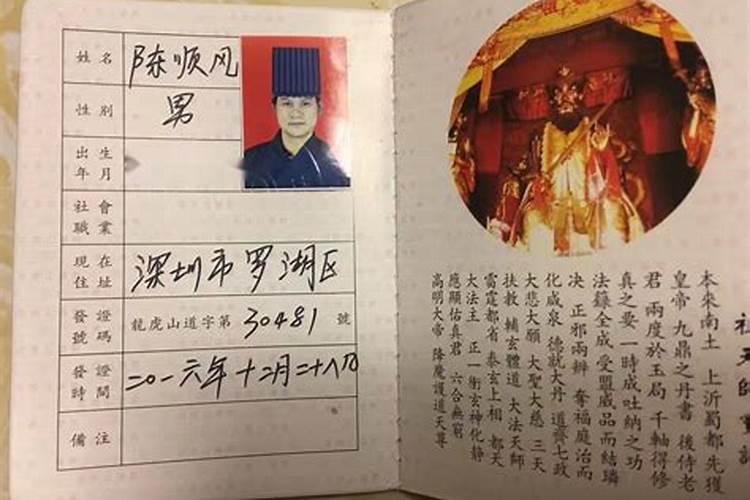 姓名 陈顺风
性別 男
出生年月
社會職業
現在住址 深圳市罗湖区
發證號碼 龍虎山道字第 30481 號
發證時間 二〇一六年十二月二十八日
備注
天師寶
本來南土 上沂蜀都 先獲
皇帝 九鼎之丹書 後侍老
君 兩度於玉局 千軸得修
真之要 一時成吐納之功
法籙全成 受盟威品而結璘
決 正邪兩辨 奪福庭治而
化咸泉 德就大丹 道齊七政
大悲大願 大聖大慈 三天
扶教 輔玄體道 大法天師
雷霆都省 泰玄上相 都天
大法主 正一衝玄神化静
應顯佑真君 六合無窮
高明大帝 降魔護道天尊